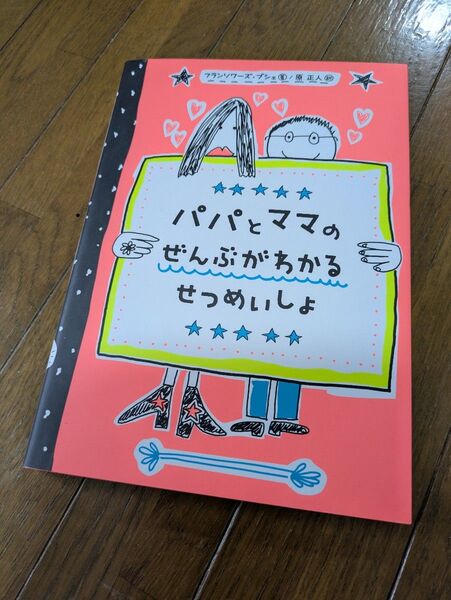 フランソワーズ・ブシェ 著/原 正人 訳
パパとママの
ぜんぶがわかる
せつめいしょ